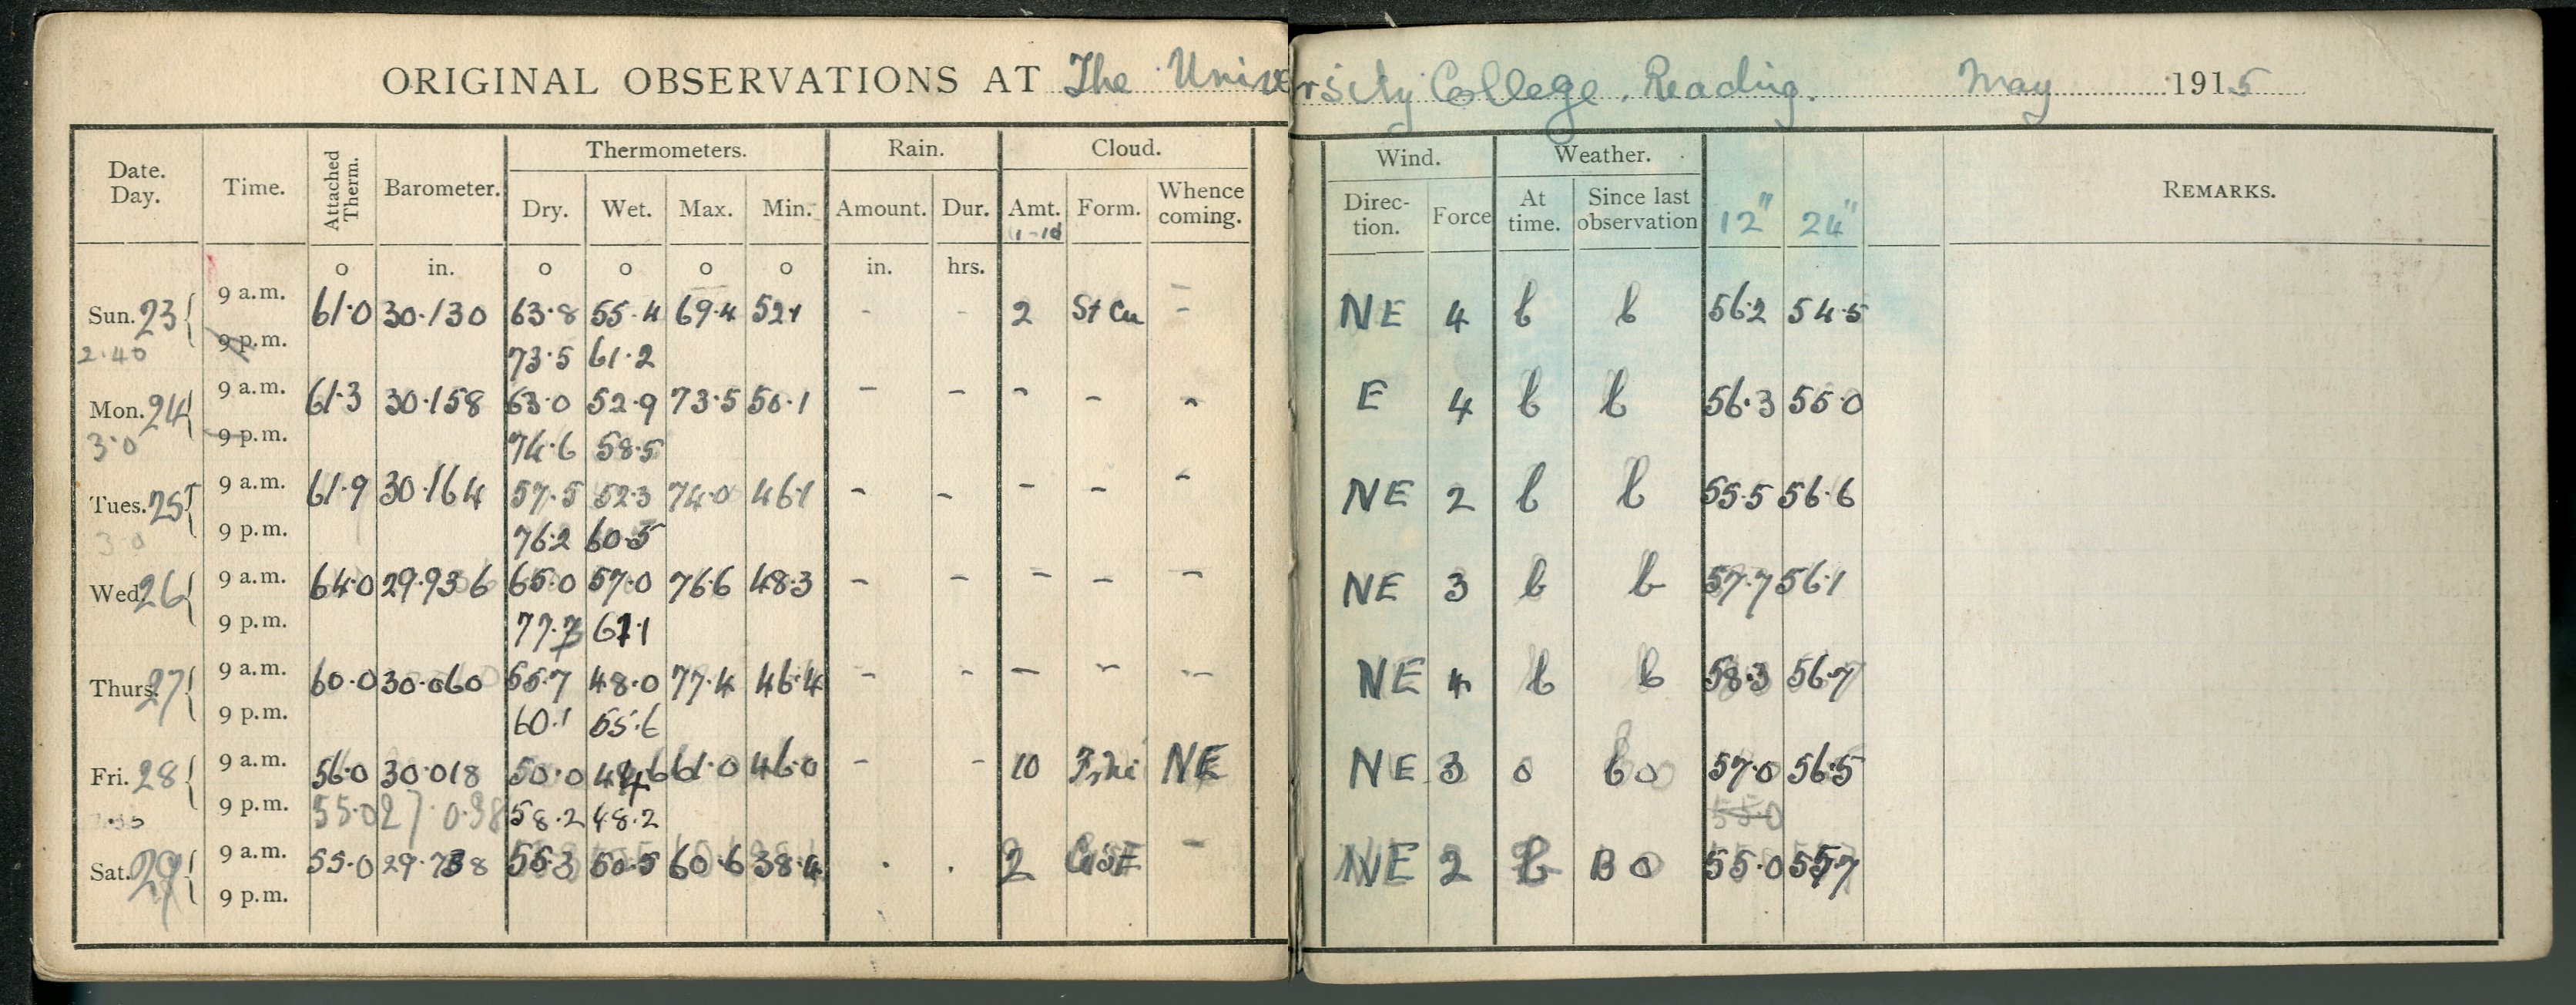 ORIGINAL OBSERVATIONS AT The University College, Reading. May 1915
Date. Day. Time. Attached Therm. Barometer. Thermometers. Rain. Cloud. Wind. Weather. 12" 24" REMARKS.
Dry. Wet. Max. Min. Amount. Dur. Amt. (1-10) Form. Whence coming. Direc- tion. Force At time. Since last observation
o in. o o o o in. hrs.
Sun. 23 9 a.m. 61.0 30.130 63.8 55.4 69.4 52.1 - - 2 St Cu - NE 4 b b 56.2 54.5
2.40 9 p.m. 73.5 61.2
Mon. 24 9 a.m. 61.3 30.158 63.0 52.9 73.5 50.1 - - - - - E 4 b b 56.3 55.0
3.0 9 p.m. 74.6 58.5
Tues. 25 9 a.m. 61.9 30.164 57.5 52.3 74.0 46.1 - - - - - NE 2 b b 55.5 56.6
3.0 9 p.m. 76.2 60.5
Wed. 26 9 a.m. 64.0 29.936 65.0 57.0 76.6 48.3 - - - - - NE 3 b b 57.7 56.1
9 p.m. 77.7 61.1
Thurs. 27 9 a.m. 60.0 30.060 55.7 48.0 77.4 46.4 - - - - - NE 4 b b 58.3 56.7
9 p.m. 60.1 55.6
Fri. 28 9 a.m. 56.0 30.018 50.0 61.0 46.0 - - 10 NE NE 3 o bo 57.0 56.5
9 p.m. 55.0 58.2 48.2 55.0
Sat. 29 9 a.m. 55.0 29.738 55.3 50.5 60.6 38.4 . . 2 - NE 2 b B o 55.0 55.7
9 p.m.